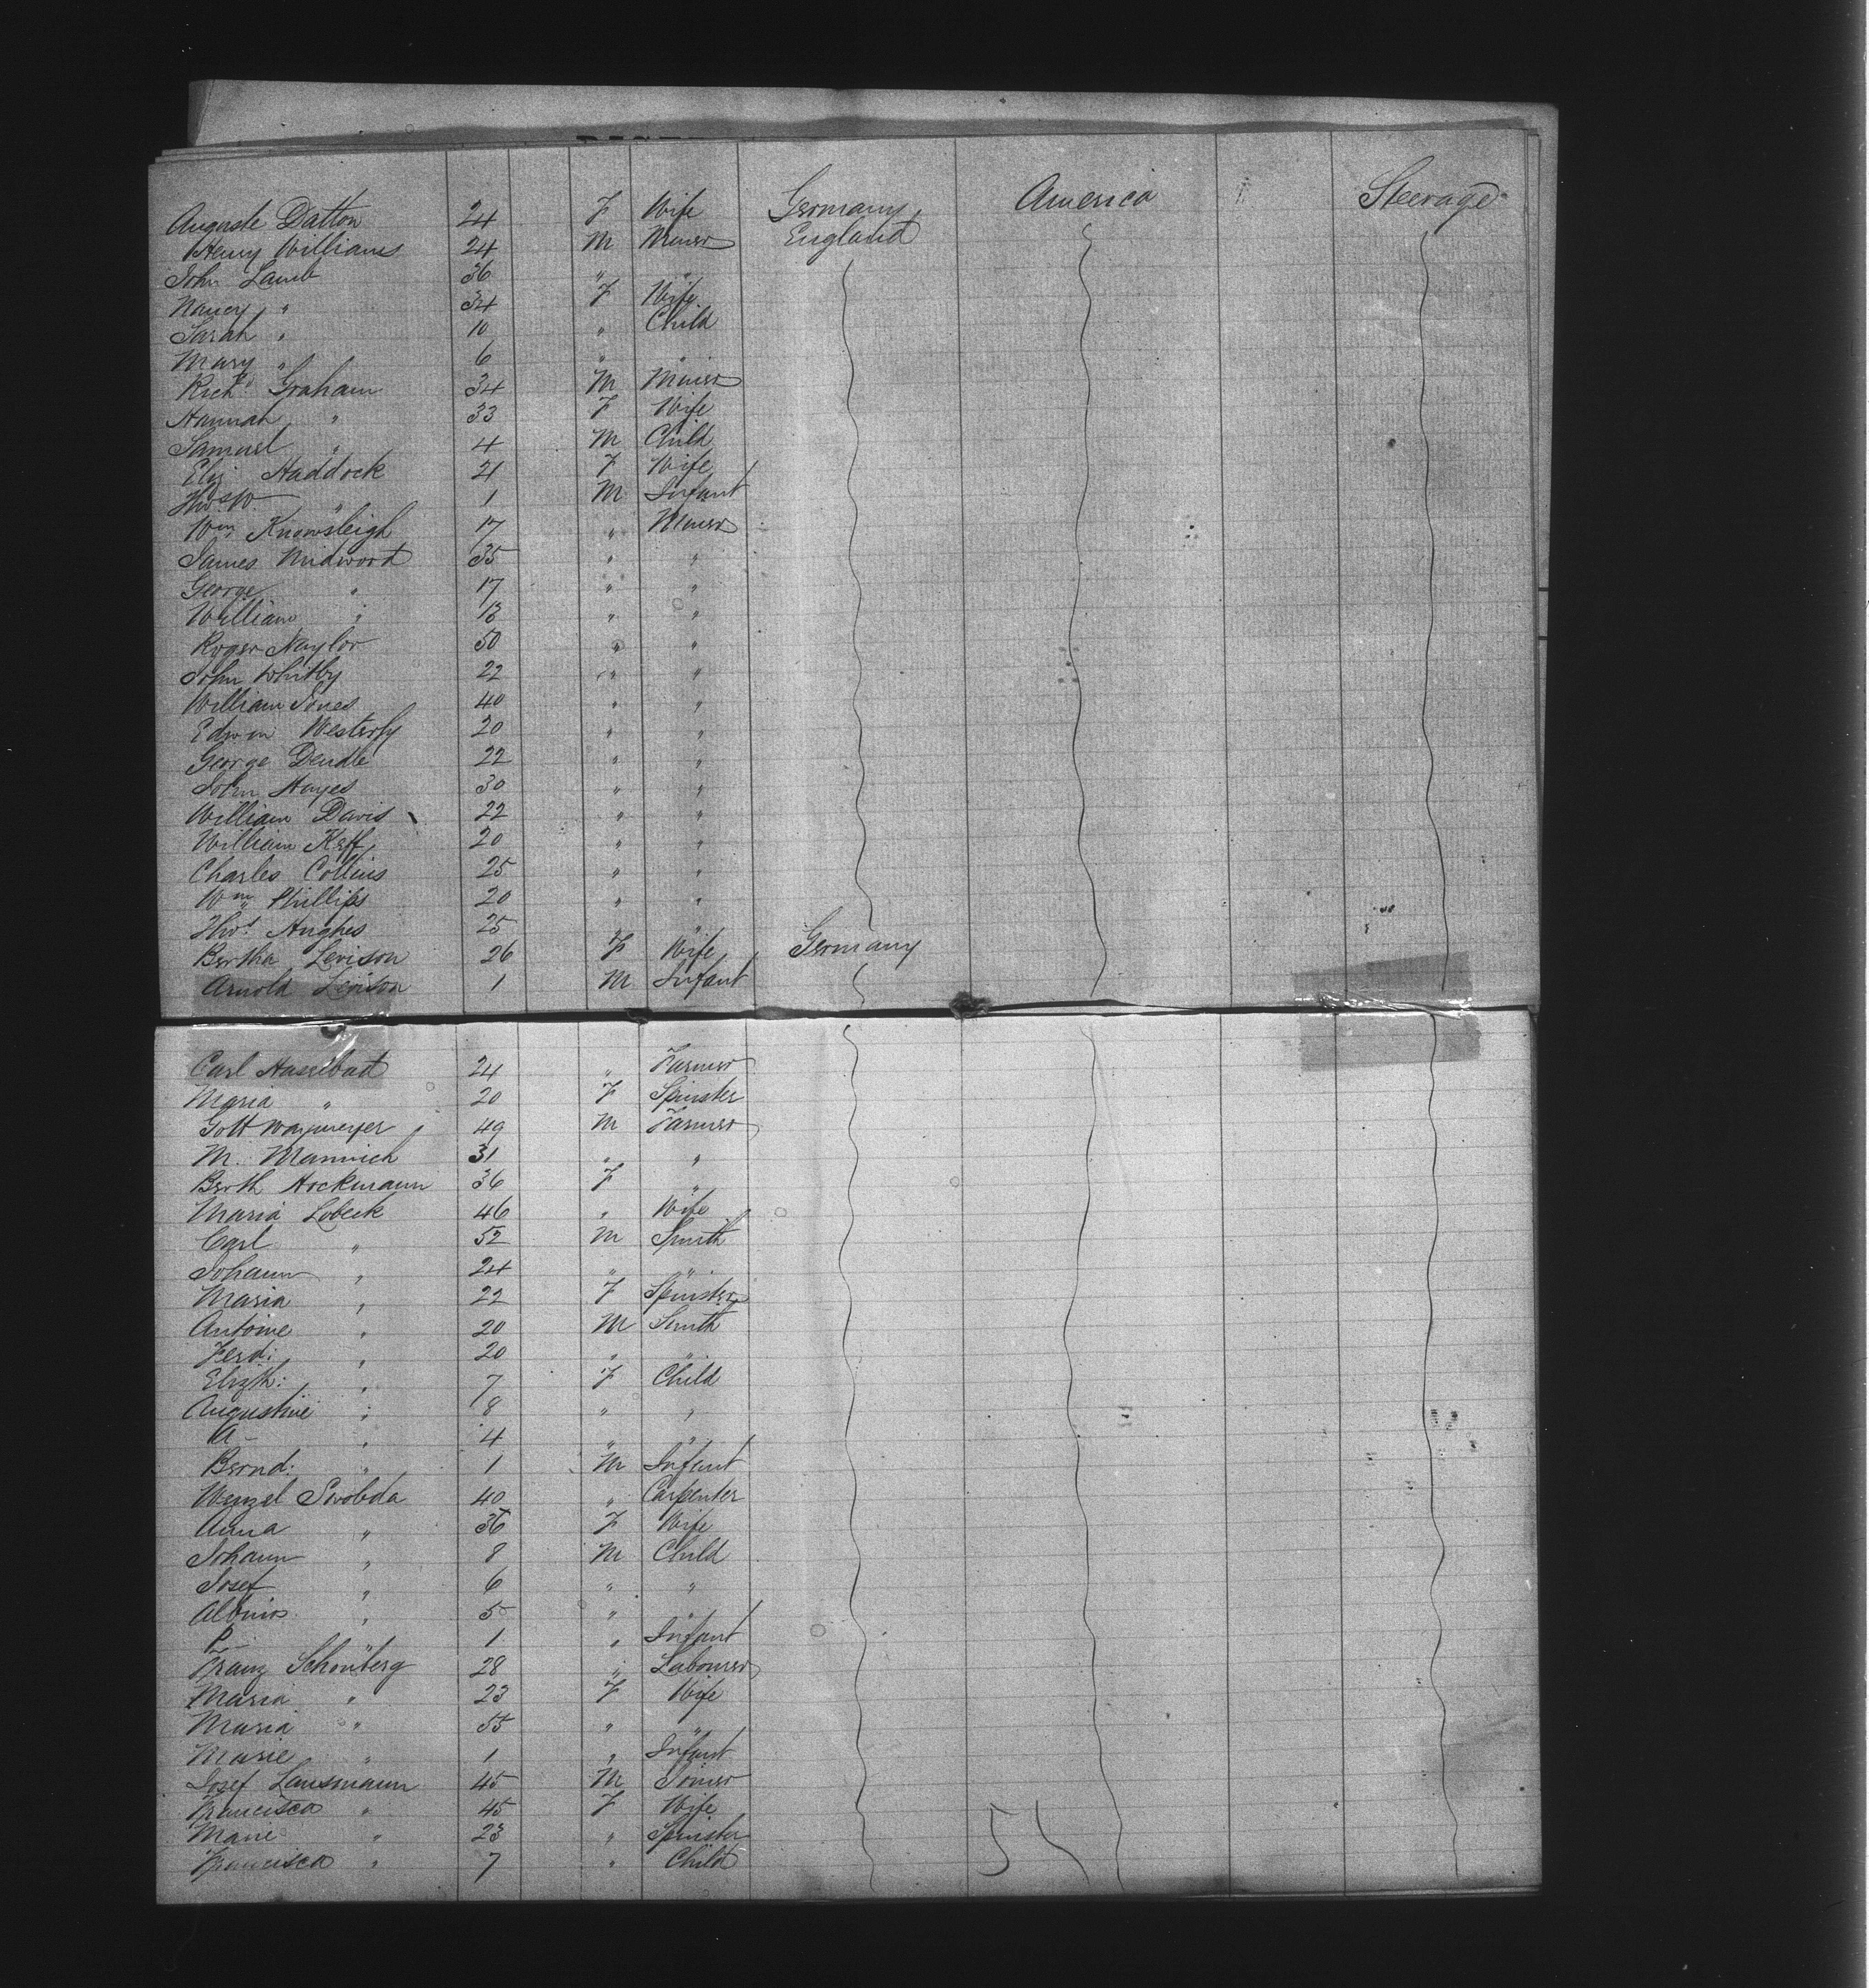 Auguste Datton 24 F Wife Germany America Steerage
Henry Williams 24 M Miner England
John Lamb 36 " "
Nancy " 34 F Wife
Sarah " 10 " Child
Mary " 6 " "
Richd Graham 34 M Miner
Hannah " 33 F Wife
Samuel " 4 M Child
Eliz Haddock 21 F Wife
Thos W. " 1 M Infant
Wm Knowsleigh 17 " Miner
James Midwood 35 " "
George " 17 " "
William " 13 " "
Roger Naylor 50 " "
John Whitby 22 " "
William Jones 40 " "
Edwin Westerby 20 " "
George Dendle 22 " "
John Hayes 30 " "
William Davis 22 " "
William Keff 20 " "
Charles Collins 25 " "
Wm Phillips 20 " "
Thos Hughes 25 " "
Bertha Levison 26 F Wife Germany
Arnold Levison 1 M Infant
Carl Hasselbad 24 " Farmer
Maria " 20 F Spinster
Gott 49 M Farmer
M. Mannich 31 " "
Berth Hockmann 36 F "
Maria Lobeck 46 " Wife
Carl " 52 M Smith
Johann " 24 " "
Maria " 22 F Spinster
Antoine " 20 M Smith
Ferd: " 20 " "
Elizth: " 7 F Child
Augustine " 8 " "
A- " 4 " "
Bernd: " 1 M Infant
Wenzel Swoboda 40 " Carpenter
Anna " 36 F Wife
Johann " 8 M Child
Josef " 6 " "
Albinos " 5 " "
P- 1 " Infant
Franz Schönberg 28 " Labourer
Maria " 23 F Wife
Maria " 55 " "
Marie " 1 " Infant
Josef Lansmann 45 M Joiner
Francisca " 45 F Wife
Marie " 23 " Spinster
Francisca " 7 " Child